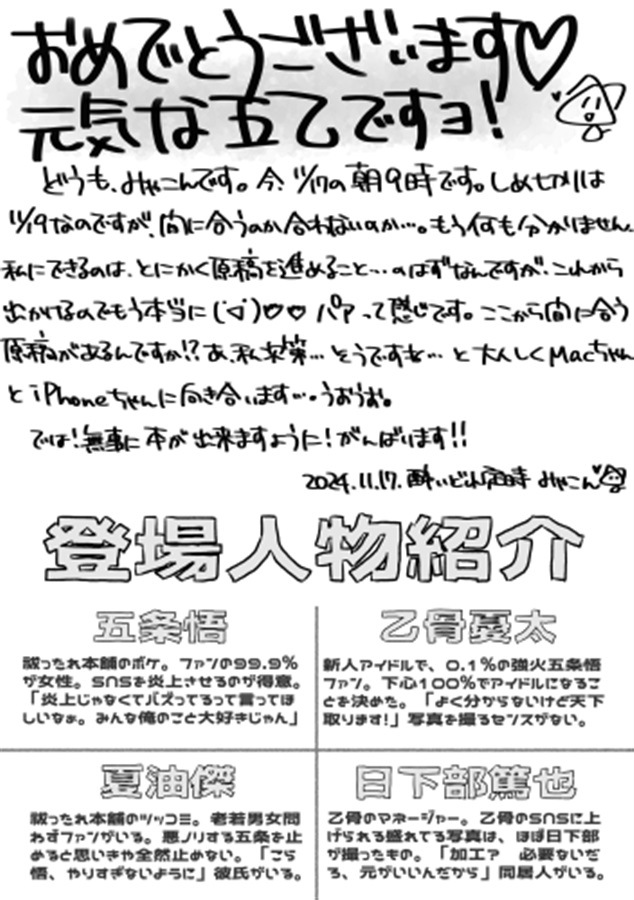 おめでとうございます♡
元気な五乙ですョ!
どうも、みやこんです。今、11/17の朝9時です。しめ切りは
11/19なのですが、間に合うのか合わないのか…。もう何も分かりません。
私にできるのは、とにかく原稿を進めること…のはずなんですが、これから
出かけるのでもう本当に('ᢦ')♡♡ パァって感じです。ここから間に合う
原稿があるんですか!?あ、私次第…そうですを…と大人しくMacちゃん
とiPhoneちゃんに向き合います…。うおうお。
では!無事に本が出来ますように!がんばります!!
2024.11.17. 酔いどれ みやこん
登場人物紹介
五条悟
祓ったれ本舗のボケ。ファンの99.9%
が女性。SNSを炎上させるのが得意。
「炎上じゃなくてバズってるって言ってほ
しいなぁ。みんな俺のこと大好きじゃん」
乙骨憂太
新人アイドルで、0.1%の強火五条悟
ファン。下心100%でアイドルになるこ
とを決めた。「よく分からないけど天下
取ります!」写真を撮るセンスがない。
夏油傑
祓ったれ本舗のツッコミ。老若男女問
わずファンがいる。悪ノリする五条を止
めると思いきや全然止めない。「こら
悟、やりすぎないように」彼氏がいる。
日下部篤也
乙骨のマネージャー。乙骨のSNSに上
げられる盛れてる写真は、ほぼ日下部
が撮ったもの。「加工? 必要ないだ
ろ、元がいいんだから」同居人がいる。